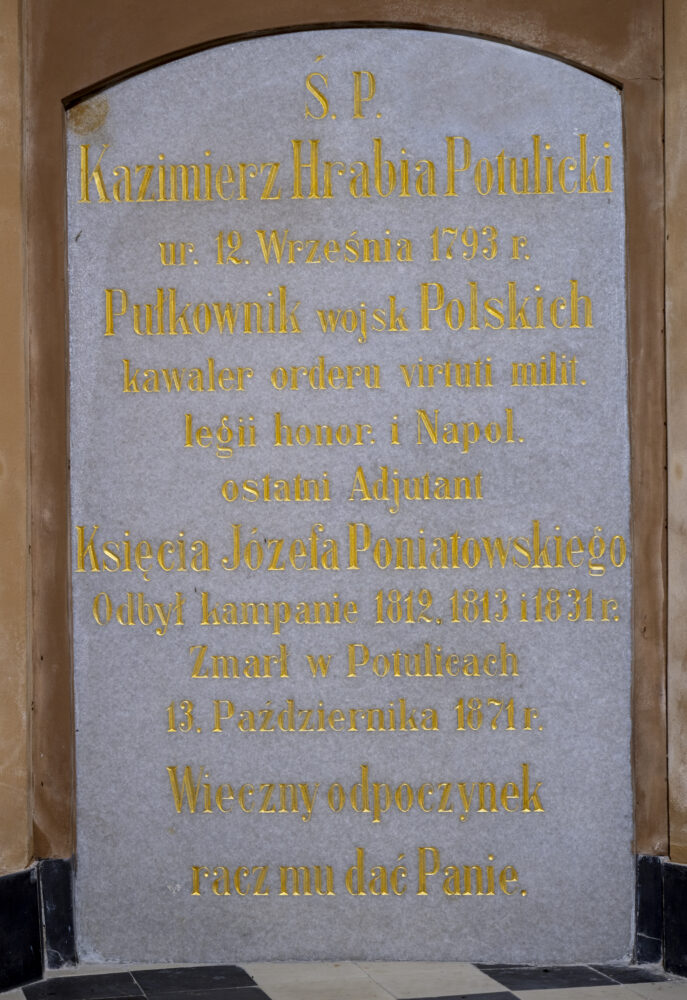 Ś. P.
Kazimierz Hrabia Potulicki
ur. 12. Września 1793 r.
Pułkownik wojsk Polskich
kawaler orderu virtuti milit.
legii honor. i Napol.
ostatni Adjutant
Księcia Józefa Poniatowskiego
Odbył kampanie 1812, 1813 i 1831 r.
Zmarł w Potulicach
13. Października 1871 r.
Wieczny odpoczynek
racz mu dać Panie.